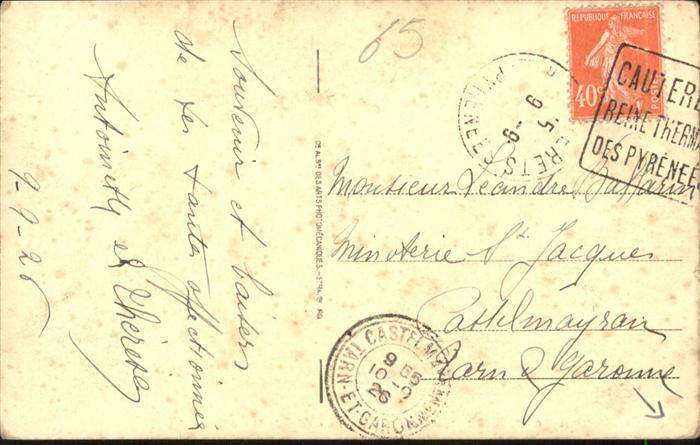 65
REPUBLIQUE FRANÇAISE
40c
POSTES
CAUTERE
REINE THERMA
DES PYRÉNÉE
RETS
9 -9
PYRENEES
Souvenir et baisers
de tes tantes affectionnées
Antoinette et Thérèse
9-9-26
DES ARTS PHOTOMÉCANIQUES
Monsieur Léandre
Minoterie St Jacques
Castelmayran
Tarn & Garonne
CASTELMAY
TARN-ET-GARONNE
9 55
10 - 9
26